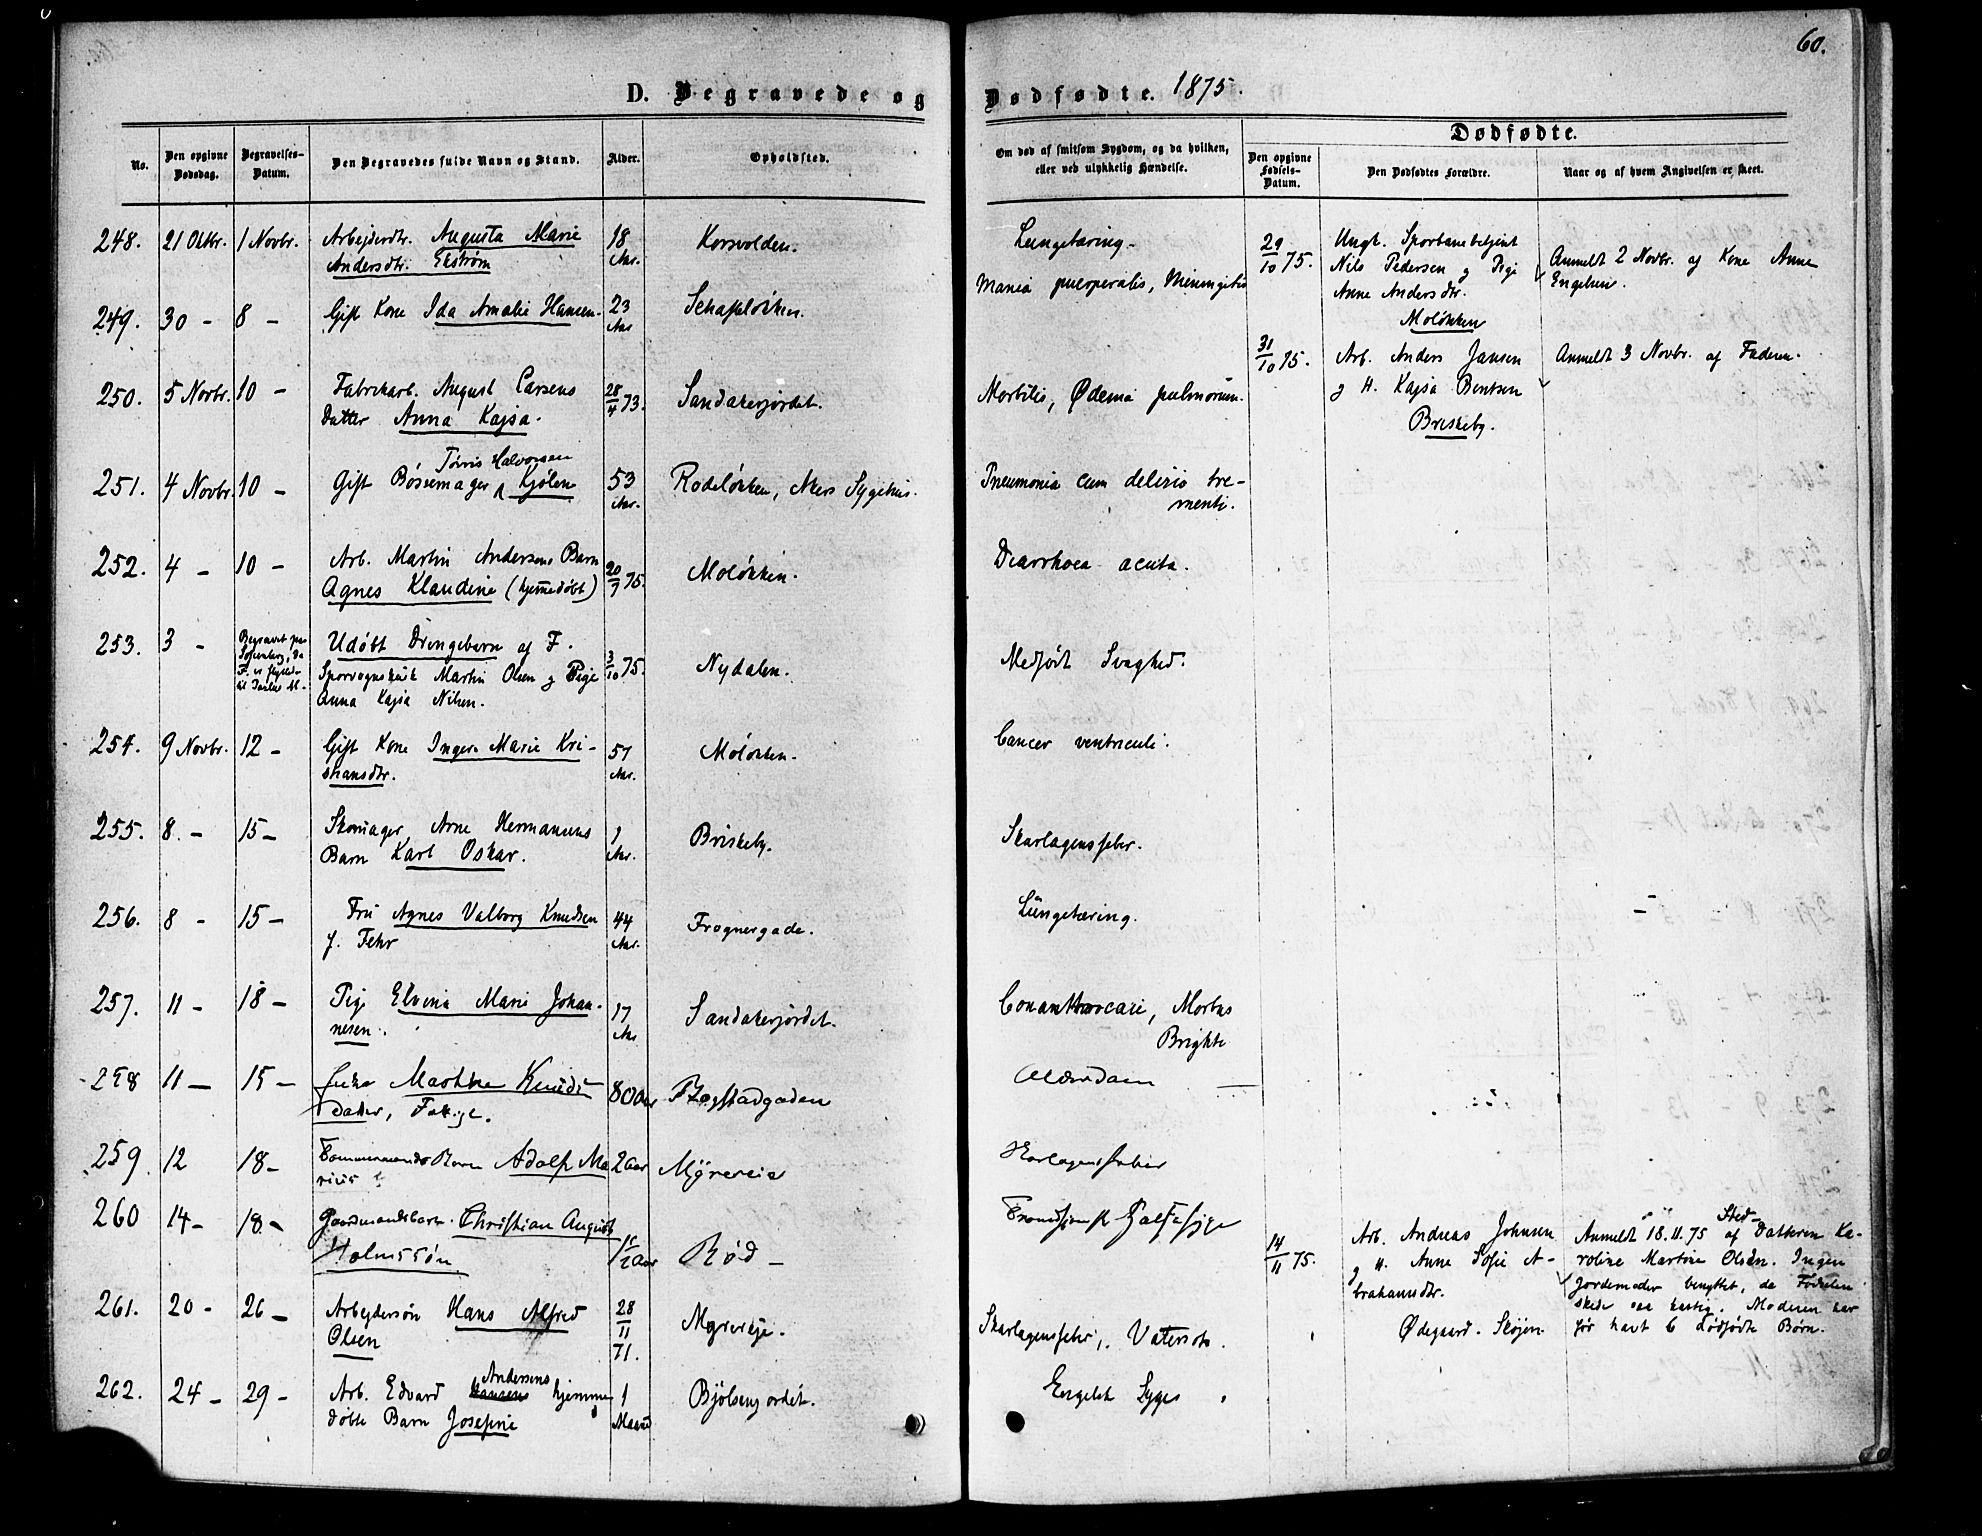 60.
D. Begravede og Dødfødte. 1875.
No.
Den opgivne Dødsdag.
Begravelses-Datum.
Den Begravedes fulde Navn og Stand.
Alder.
Opholdsted.
Om død af smitsom Sygdom, og da hvilken, eller ved ulykkelig Hændelse.
Dødfødte.
Den opgivne Fødsels-Datum.
Den Dødfødtes Forældre.
Naar og af hvem Angivelsen er skeet.
248. 21 Oktbr. 1 Novbr. Arbeiderdtr. Augusta Marie 18 Korsvolden. Lungetæring.
Andersdtr. Ekström Aar.
249. 30 - 8 - Gift Kone Ida Amalie Hansen. 23 Schafteløkken. Mania puerperalis, Meningitis
Aar
250. 5 Novbr. 10 - Fabrikarb. August Larsens 28/4 73. Sandakerjordet. Morbilli, Ødema pulmorum.
Datter Anna Kajsa.
Törris Halvorsen
251. 4 Novbr. 10 - Gift Bøssemager Kjölen 53 Rodeløkken, Akers Sygehus. Pneumonia cum delirio tre-
Aar. menti.
252. 4 - 10 - Arb. Martin Andersens Barn 20/7 75. Moløkken. Diarrhoea acuta.
Agnes Klaudine (hjemmedøbt)
253. 3 - Begravet paa Udøbt Drengebarn af F. 3/10 75. Nydalen. Medfødt Svaghed.
Sofienberg, da Sporvognskusk Martin Olsen g Pige
F. er flyttet Anna Kajsa Nilsen.
254. 9 Novbr. 12 - Gift Kone Inger Marie Kri- 57 Moløkken. Cancer ventriculi.
stiansdtr. Aar.
255. 8. - 15 - Skomager Arne Hermansens 1 Briskeby. Skarlagensfeber.
Barn Karl Oskar. Aar.
256. 8 - 15 - Fru Agnes Valborg Knudsen 44 Frognergade. Lungetæring.
f. Fehr Aar.
257. 11 - 18 - Pige Elvina Marie Johan- 17 Sandakerjordet. Morbus
nesen. Aar Brighti
258 11 - 15 - Enke Marthe Knuds 80 Aar Bogstadgaden Alderdom
datter, Fattige.
259. 12 18 - Tømmermands Barn Adolf Ma 2 aar Myrereia Skarlagensfeber
rius
260 14 - 18. - Gaardmandsbarn Christian August
Holmssön 1/2 aar Röd -
261. 20 - 26 - Arbejdersøn Hans Alfred 28/11 71. Myrereje. Skarlagensfeber, Vatersot.
Olsen
262. 24 - 29 - Arb. Edvard Hansens Andersens hjemme 1 Bjölsenjordet. Engelsk Syge
døbte Barn Josefine Maaned
29/10 75. Ungk. Sporbanebetjent Anmeldt 2 Novbr. af Kone Anne
Nils Pedersen g Pige Engelsen.
Anne Andersdtr.
Moløkken
31/10 75. Arb. Anders Jansen Anmeldt 3 Novbr. af Faderen.
g H. Kajsa Bentsen
Briskeby.
14/11 75. Arb. Andreas Johnsen Anmeldt 18.11.75 af Sted-Datteren Ka-
g H. Anne Sofie A- roline Martine Olsen. Ingen
brahamsdtr. Jordemoder benyttet, da Fødselen
skede saa hastig. Moderen har
Ødegaard. Skøjen. før havt 6 dødfødte Børn.